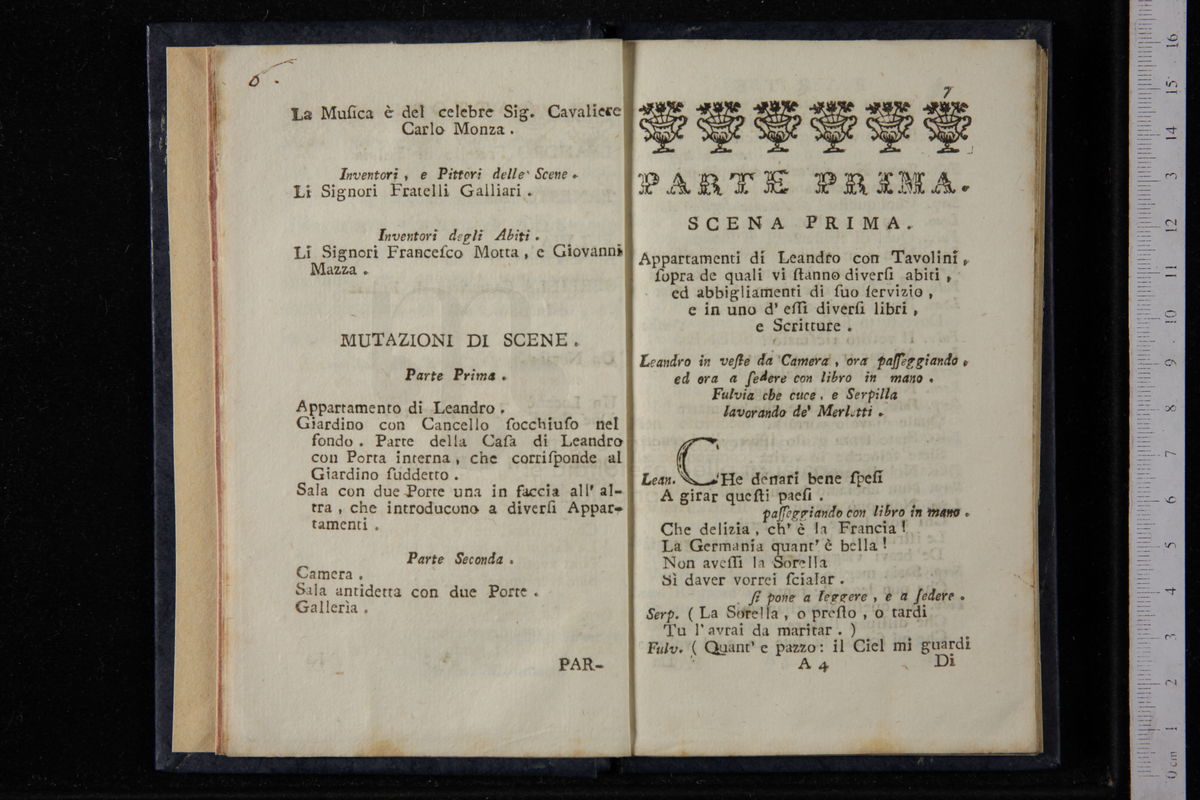 6.
La Muſica è del celebre Sig. Cavaliere
Carlo Monza.
Inventori, e Pittori delle Scene.
Li Signori Fratelli Galliari.
Inventori degli Abiti.
Li Signori Franceſco Motta, e Giovanni
Mazza.
MUTAZIONI DI SCENE.
Parte Prima.
Appartamento di Leandro.
Giardino con Cancello ſocchiuſo nel
fondo. Parte della Caſa di Leandro
con Porta interna, che corriſponde al
Giardino ſuddetto.
Sala con due Porte una in faccia all' al-
tra, che introducono a diverſi Appar-
tamenti.
Parte Seconda.
Camera.
Sala antidetta con due Porte.
Gallerìa.
PAR-
7
PARTE PRIMA.
SCENA PRIMA.
Appartamenti di Leandro con Tavolini,
ſopra de quali vi ſtanno diverſi abiti,
ed abbigliamenti di ſuo ſervizio,
e in uno d' eſſi diverſi libri,
e Scritture.
Leandro in veſte da Camera, ora paſſeggiando,
ed ora a ſedere con libro in mano.
Fulvia che cuce, e Serpilla
lavorando de' Merletti.
Lean. CHe denari bene ſpeſi
A girar queſti paeſi.
paſſeggiando con libro in mano.
Che delizia, ch' è la Francia!
La Germania quant' è bella!
Non aveſſi la Sorella
Sì daver vorrei ſcialar.
ſi pone a leggere, e a ſedere.
Serp. (La Sorella, o preſto, o tardi
Tu l' avrai da maritar.)
Fulv. (Quant' e pazzo: il Ciel mi guardi
A 4 Di
0 cm 1 2 3 4 5 6 7 8 9 10 11 12 13 14 15 16